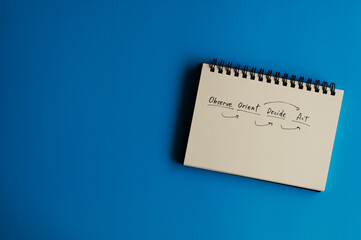 Observe Orient Decide Act